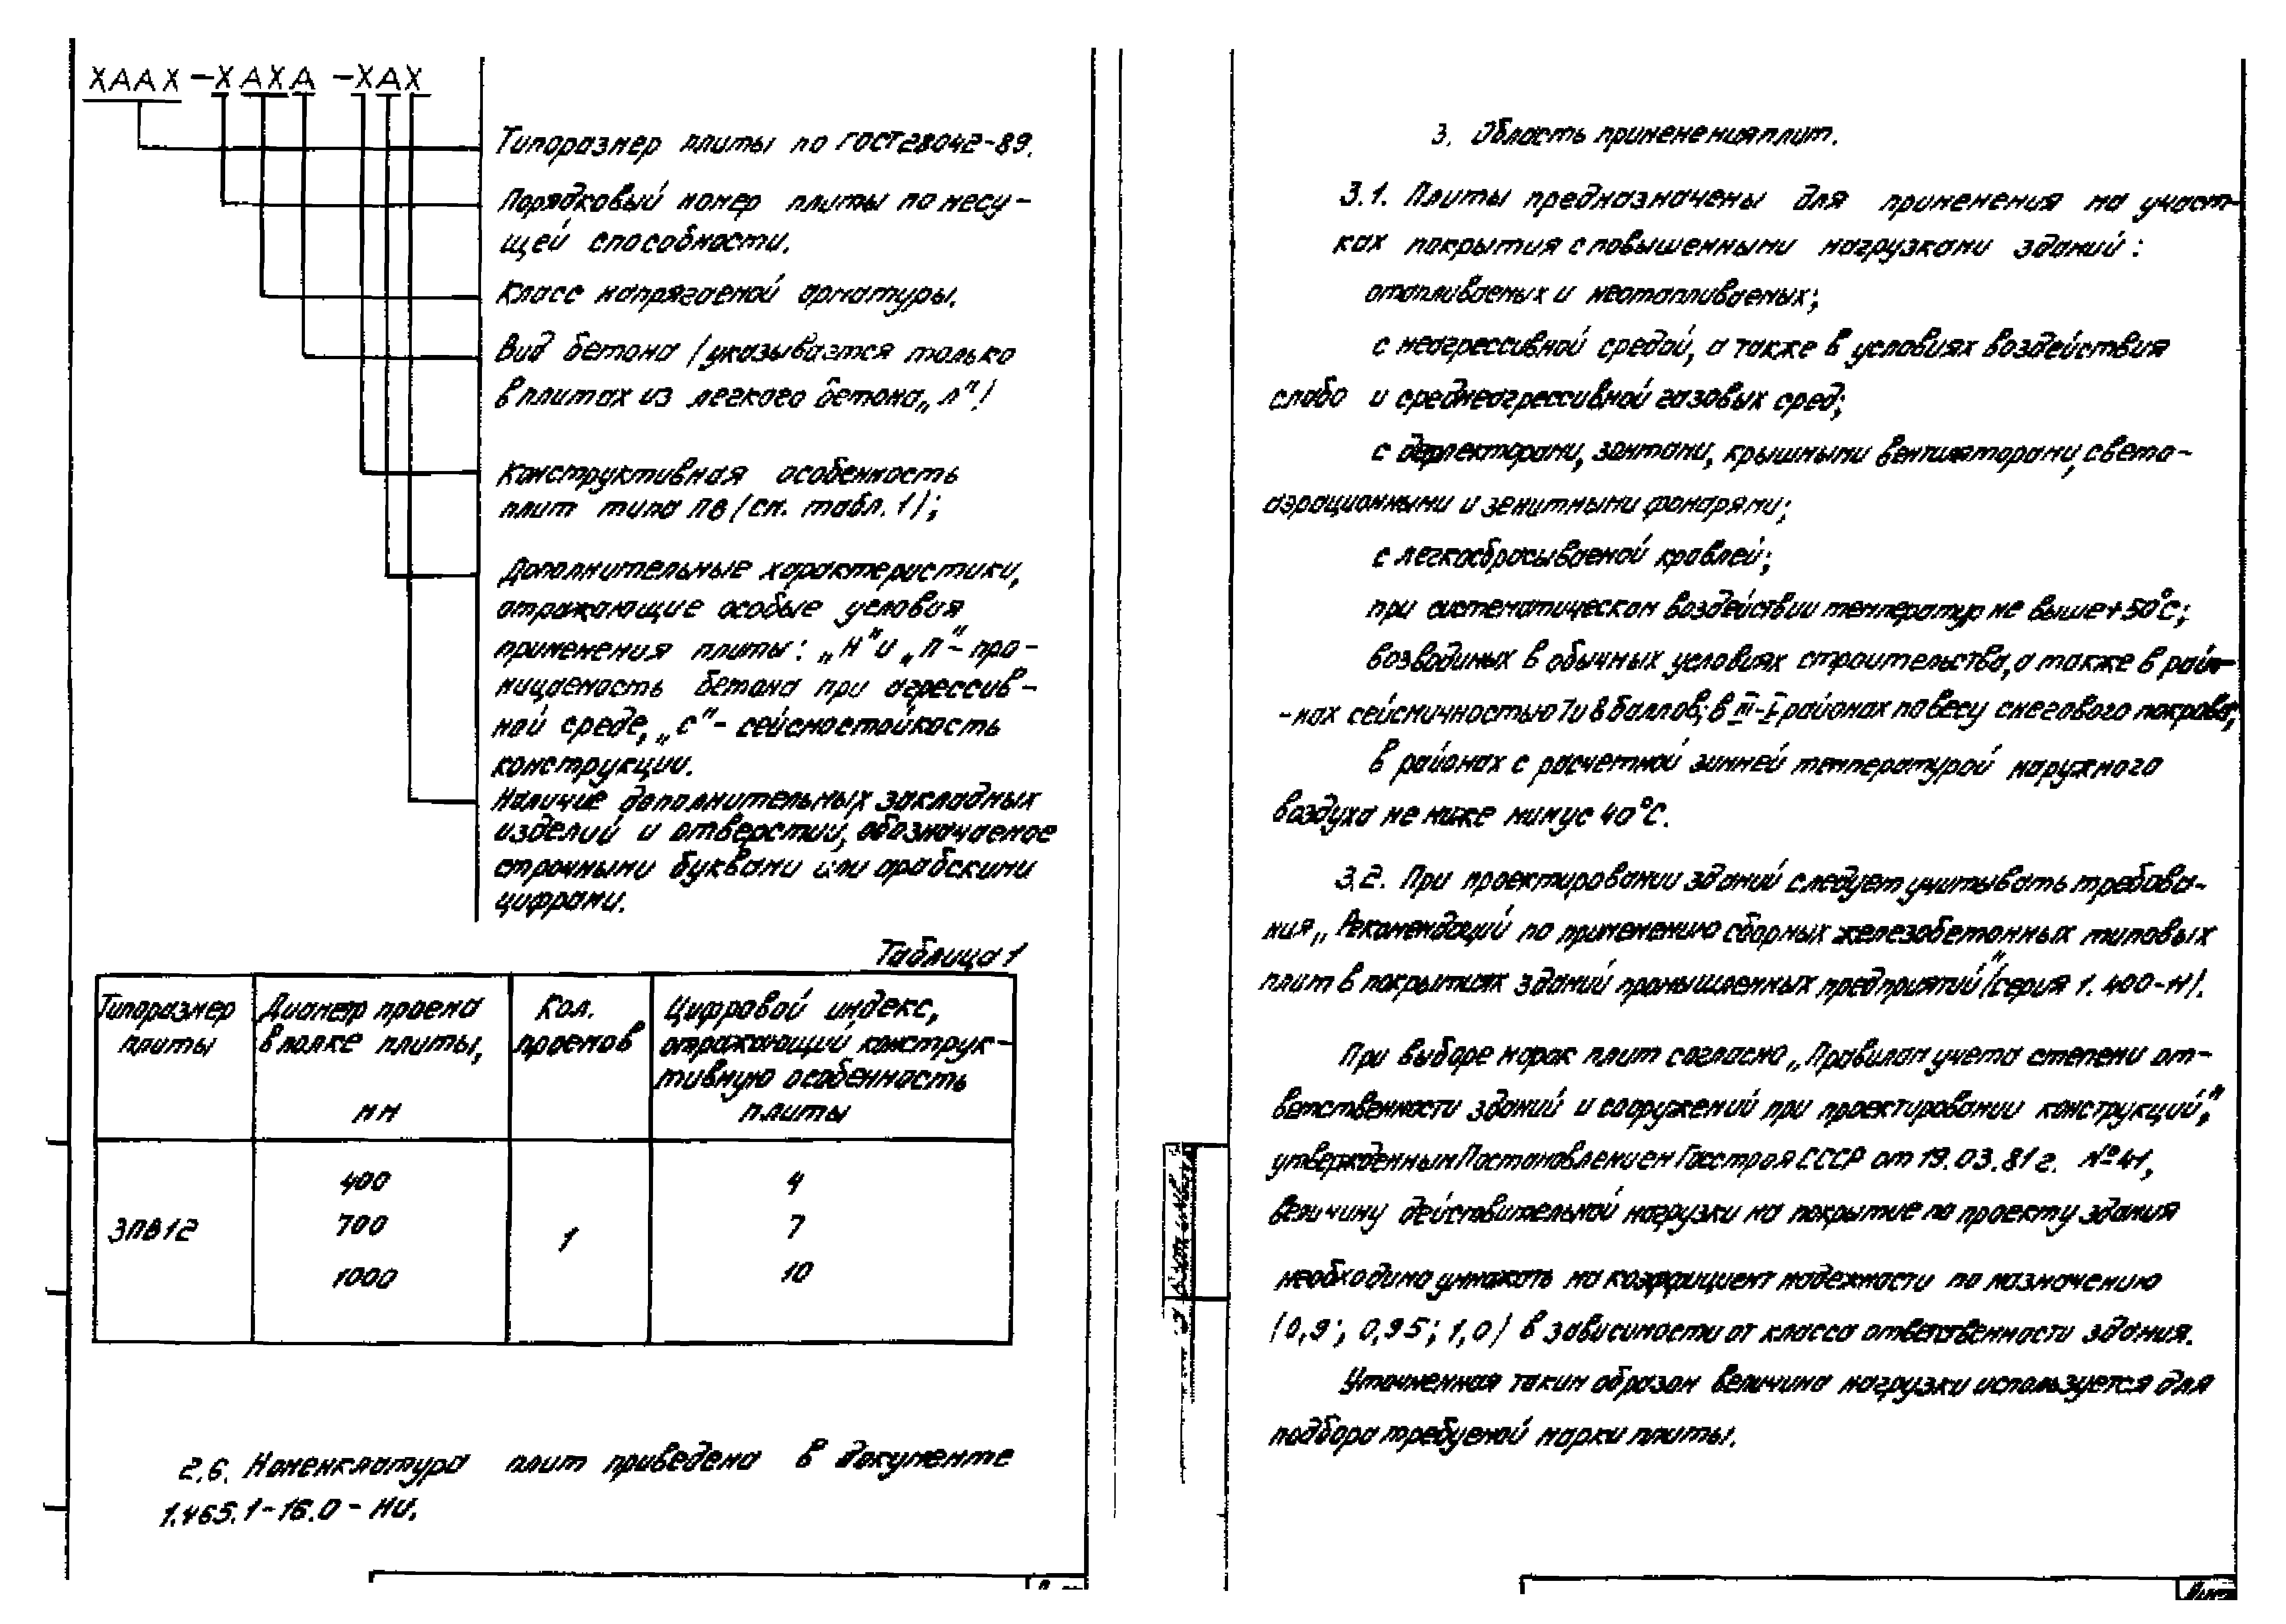 ХААХ -ХАХА -ХАХ
Типоразмер плиты по ГОСТ 28042-89.
Порядковый номер плиты по несу-
щей способности.
Класс напрягаемой арматуры.
Вид бетона /указывается только
в плитах из легкого бетона „Л"/
Конструктивная особенность
плит типа ПВ (см. табл. 1);
Дополнительные характеристики,
отражающие особые условия
применения плиты: „Н" и „П" - про-
ницаемость бетона при агрессив-
ной среде, „С" - сейсмостойкость
конструкции.
Наличие дополнительных закладных
изделий и отверстий, обозначаемое
строчными буквами или арабскими
цифрами.
Таблица 1
Типоразмер плиты | Диаметр проема в полке плиты, мм | Кол. проемов | Цифровой индекс, отражающий конструк-тивную особенность плиты
3ПВ12 | 400 | 1 | 4
700 | 7
1000 | 10
2.6. Номенклатура плит приведена в документе
1.465.1-16.0 - НИ.
3. Область применения плит.
3.1. Плиты предназначены для применения на участ-
ках покрытия с повышенными нагрузками зданий:
отапливаемых и неотапливаемых;
с неагрессивной средой, а также в условиях воздействия
слабо и среднеагрессивной газовых сред;
с дефлекторами, зонтами, крышными вентиляторами, свето-
аэрационными и зенитными фонарями;
с легкосбрасываемой кровлей;
при систематическом воздействии температур не выше +50°С;
возводимых в обычных условиях строительства, а также в райо-
-нах сейсмичностью 7 и 8 баллов; в III-I районах по весу снегового покрова;
в районах с расчетной зимней температурой наружного
воздуха не ниже минус 40°С.
3.2. При проектировании зданий следует учитывать требова-
ния „Рекомендаций по применению сборных железобетонных типовых
плит в покрытиях зданий промышленных предприятий" (серия 1.400-11).
При выборе марок плит согласно „Правилам учета степени от-
ветственности зданий и сооружений при проектировании конструкций",
утвержденным Постановлением Госстроя СССР от 19.03.81 г. № 41,
величину действительной нагрузки на покрытие по проекту здания
необходимо умножать на коэффициент надежности по назначению
(0,9; 0,95; 1,0) в зависимости от класса ответственности здания.
Уточненная таким образом величина нагрузки используется для
подбора требуемой марки плиты.
Лист